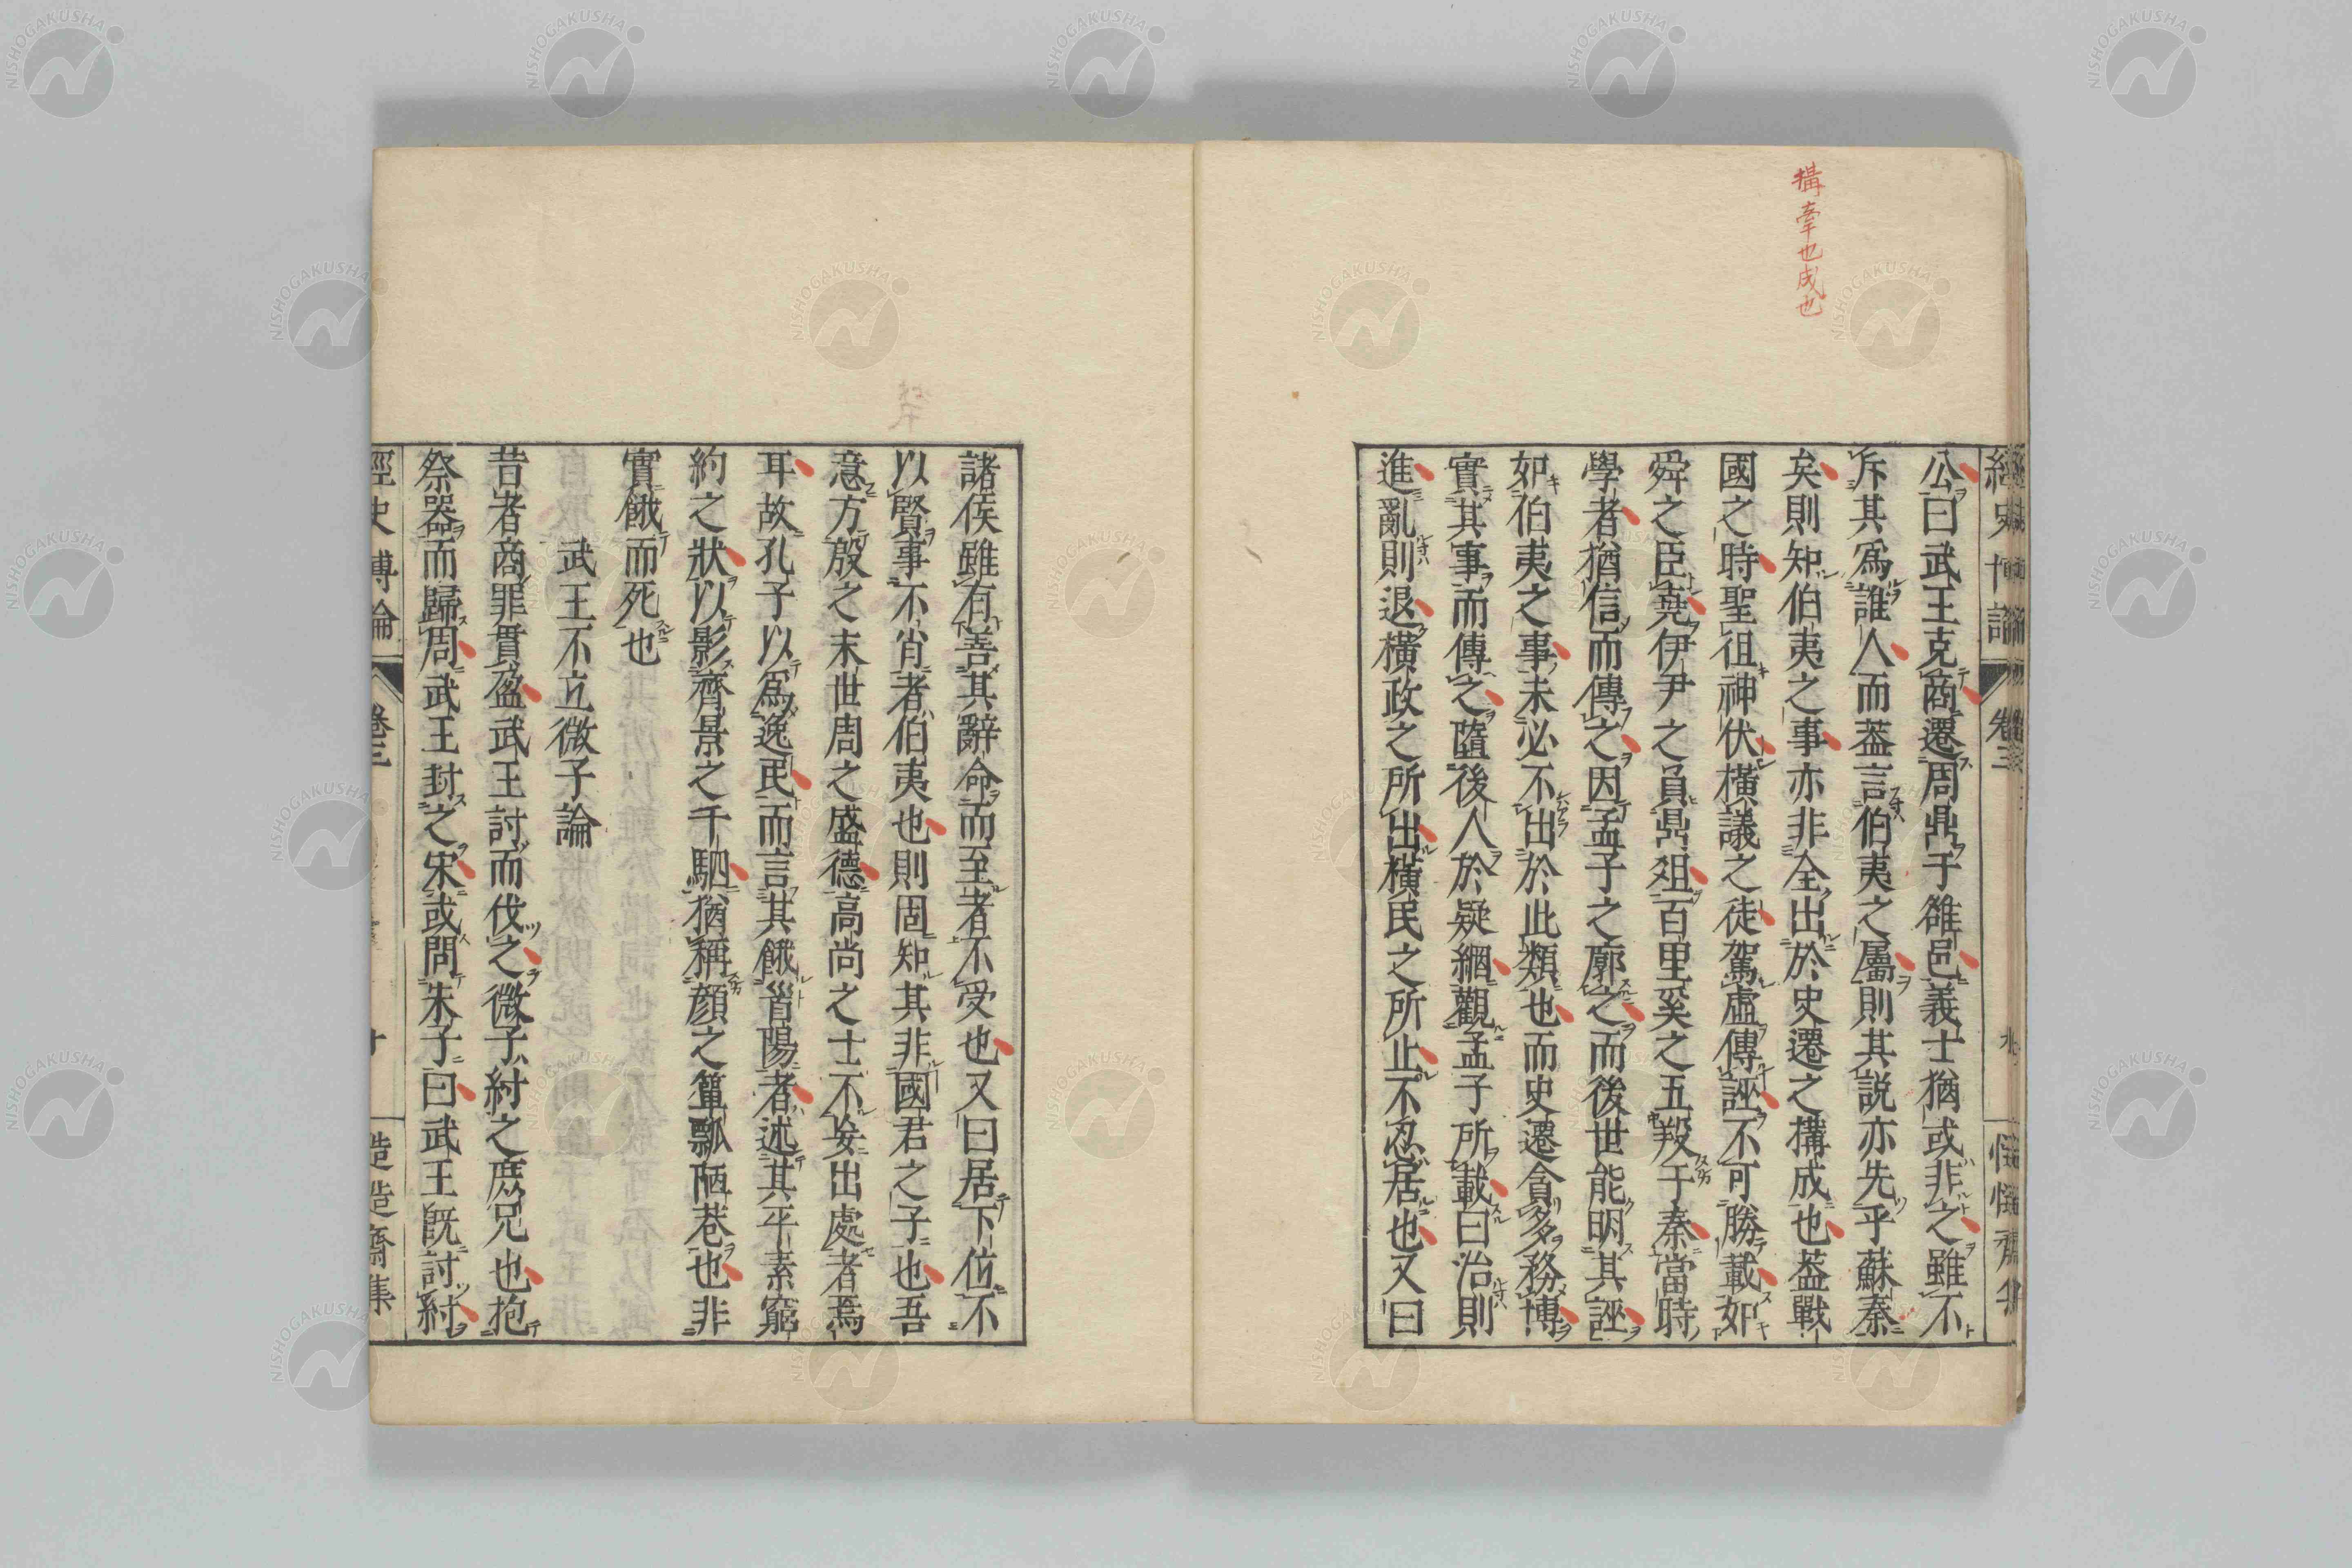 構牽也成也
公曰武王克商遷周鼎于雒邑義士猶或非之雖不
斥其爲誰人而蓋言伯夷之屬則其説亦先乎蘇秦
矣則知伯夷之事亦非全出於史遷之構成也蓋戰
國之時聖徂神伏橫議之徒駕虛傳誣不可勝載如
舜之臣堯伊尹之負鼎俎百里奚之五羖于秦當時
學者猶信而傳之因孟子之廓之而後世能明其誣
如伯夷之事未必不出於此類也而史遷貪多務博
實其事而傳之墮後人於疑網觀孟子所載曰治則
進亂則退橫政之所出橫民之所止不忍居也又曰
諸侯雖有善其辭命而至者不受也又曰居下位不
以賢事不肖者伯夷也則固知其非國君之子也吾
意方殷之末世周之盛德高尚之士不妄出處者焉
耳故孔子以爲逸民而言其餓首陽者述其平素窮
約之狀以影齊景之千駟猶稱顔之簞瓢陋巷也非
實餓而死也
武王不立微子論
昔者商罪貫盈武王討而伐之微子紂之庶兄也抱
祭器而歸周武王封之宋或問朱子曰武王既討紂
經史博論
卷三
NISHOGAKUSHA